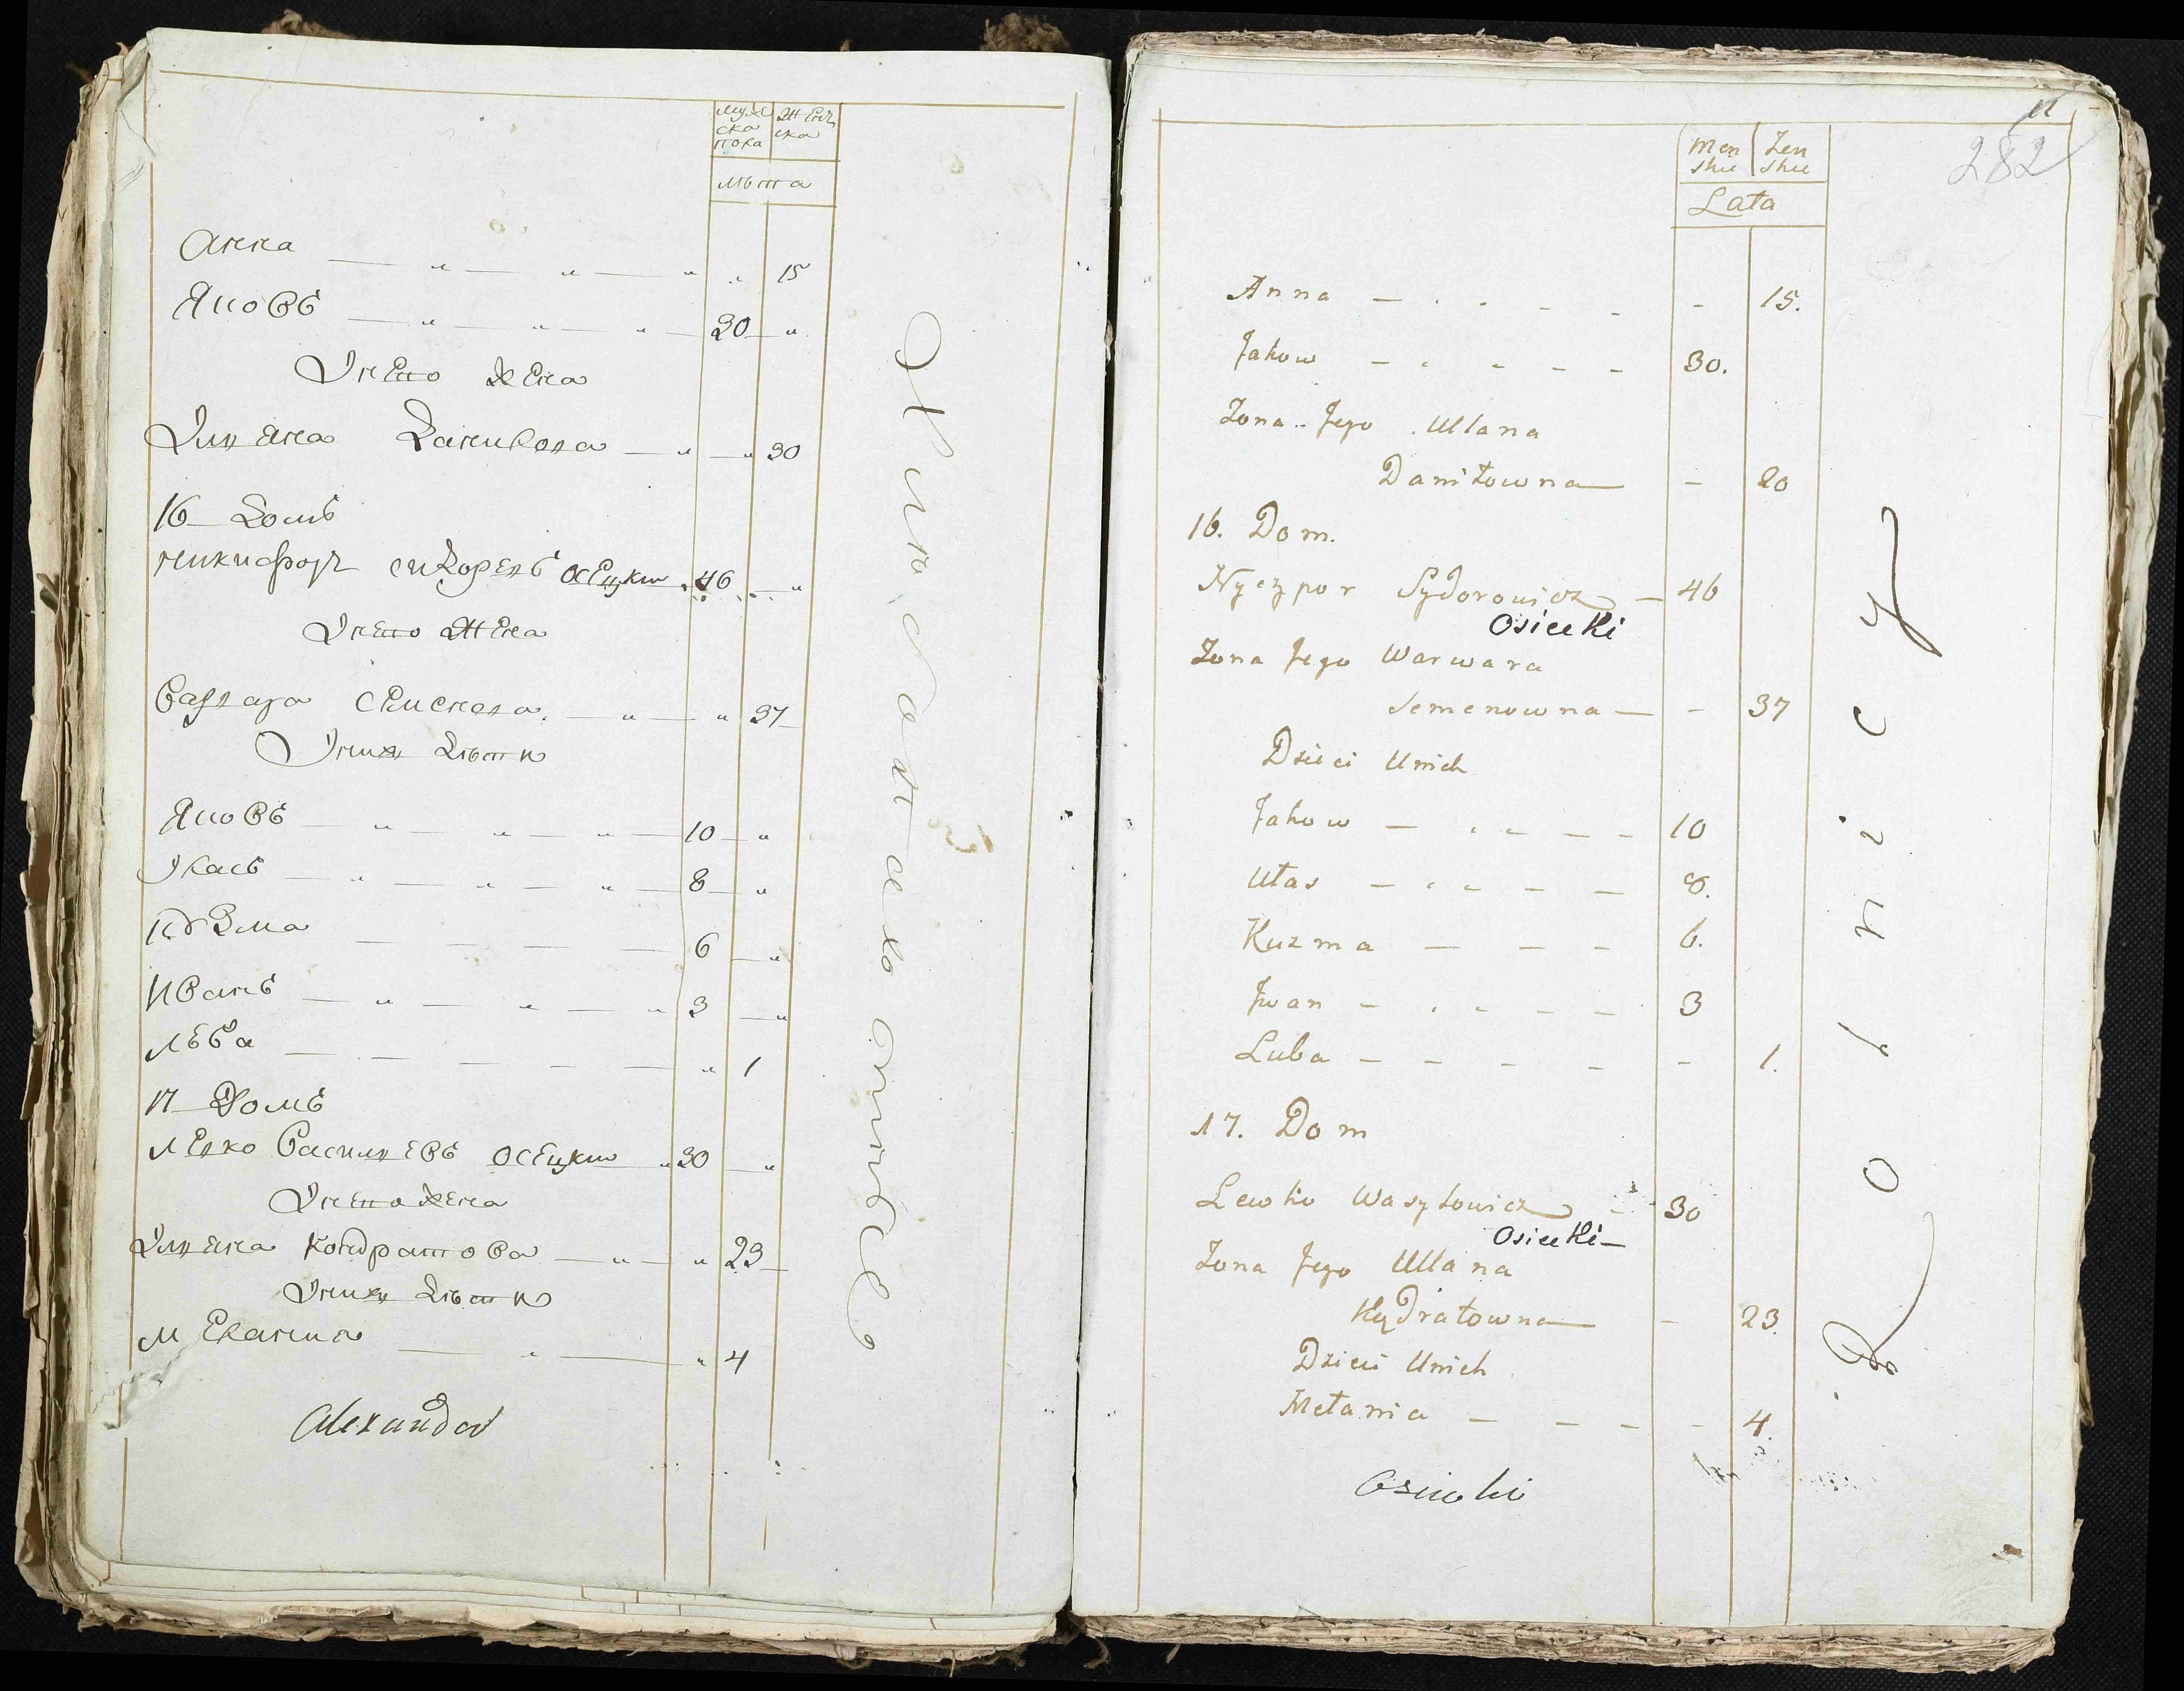 мужеска пола
женска
лѣта
Анна 15
Яковъ 30
У него жена
Улляна Данилова 30
16 Домъ
Никифоръ Сидоревъ Осецки 46
У него жена
Варвара Семенова 37
У них дѣти
Яковъ 10
Уласъ 8
Кузма 6
Иванъ 3
17 Домъ
Левко Василевъ Осецки 30
У него жена
Улляна Кондратова 23
У них дѣти
Мелания 4
Alexander
11
282
Men skie
Zen skie
Lata
Anna 15.
Jakow 30.
Zona Jego Ullana
Daniłowna 20
16. Dom.
Nyczypor Sydorowicz 46
Osiecki
Zona Jego Warwara
Semenowna 37
Dzieci Unich
Jakow 10
Ułas 8.
Kuzma 6.
Jwan 3
Luba 1.
17. Dom
Lewko Wasyłowicz 30
Osiecki
Zona Jego Ullana
23.
Dzieci Unich
Mełania 4.
Osiecki
Rolnicy